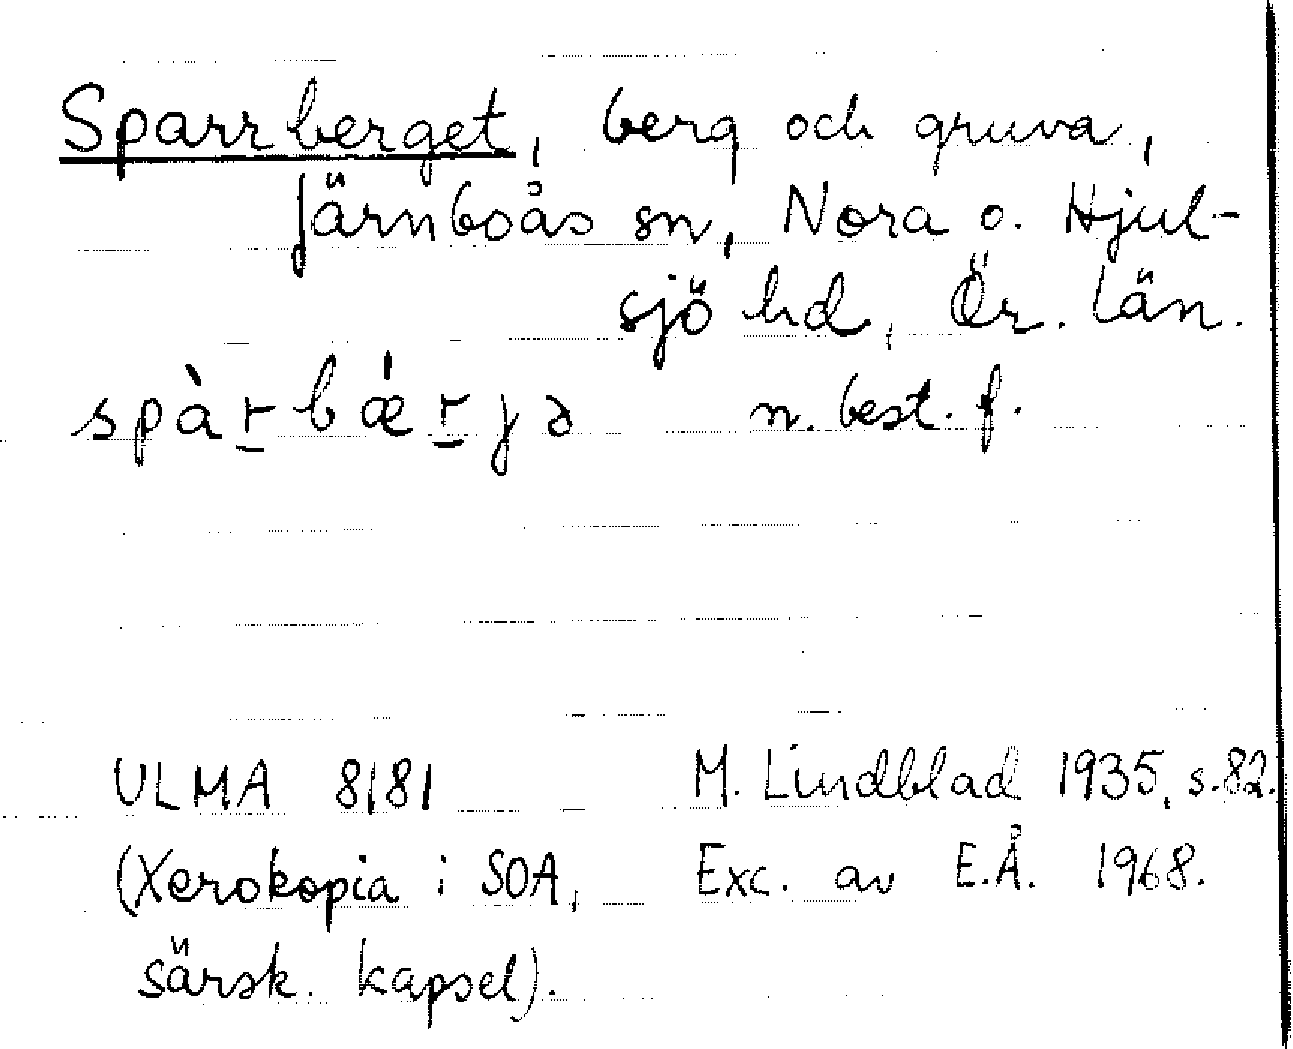 Sparrberget, berg och gruva,
Järnboås sn, Nora o. Hjul-
sjö hd, Ör. län.
spàr̠bǽr̠jə n. best. f.
ULMA 8181 M. Lindblad 1935, s. 82.
(Xerokopia i SOA, Exc. av E.Å. 1968.
särsk. kapsel).